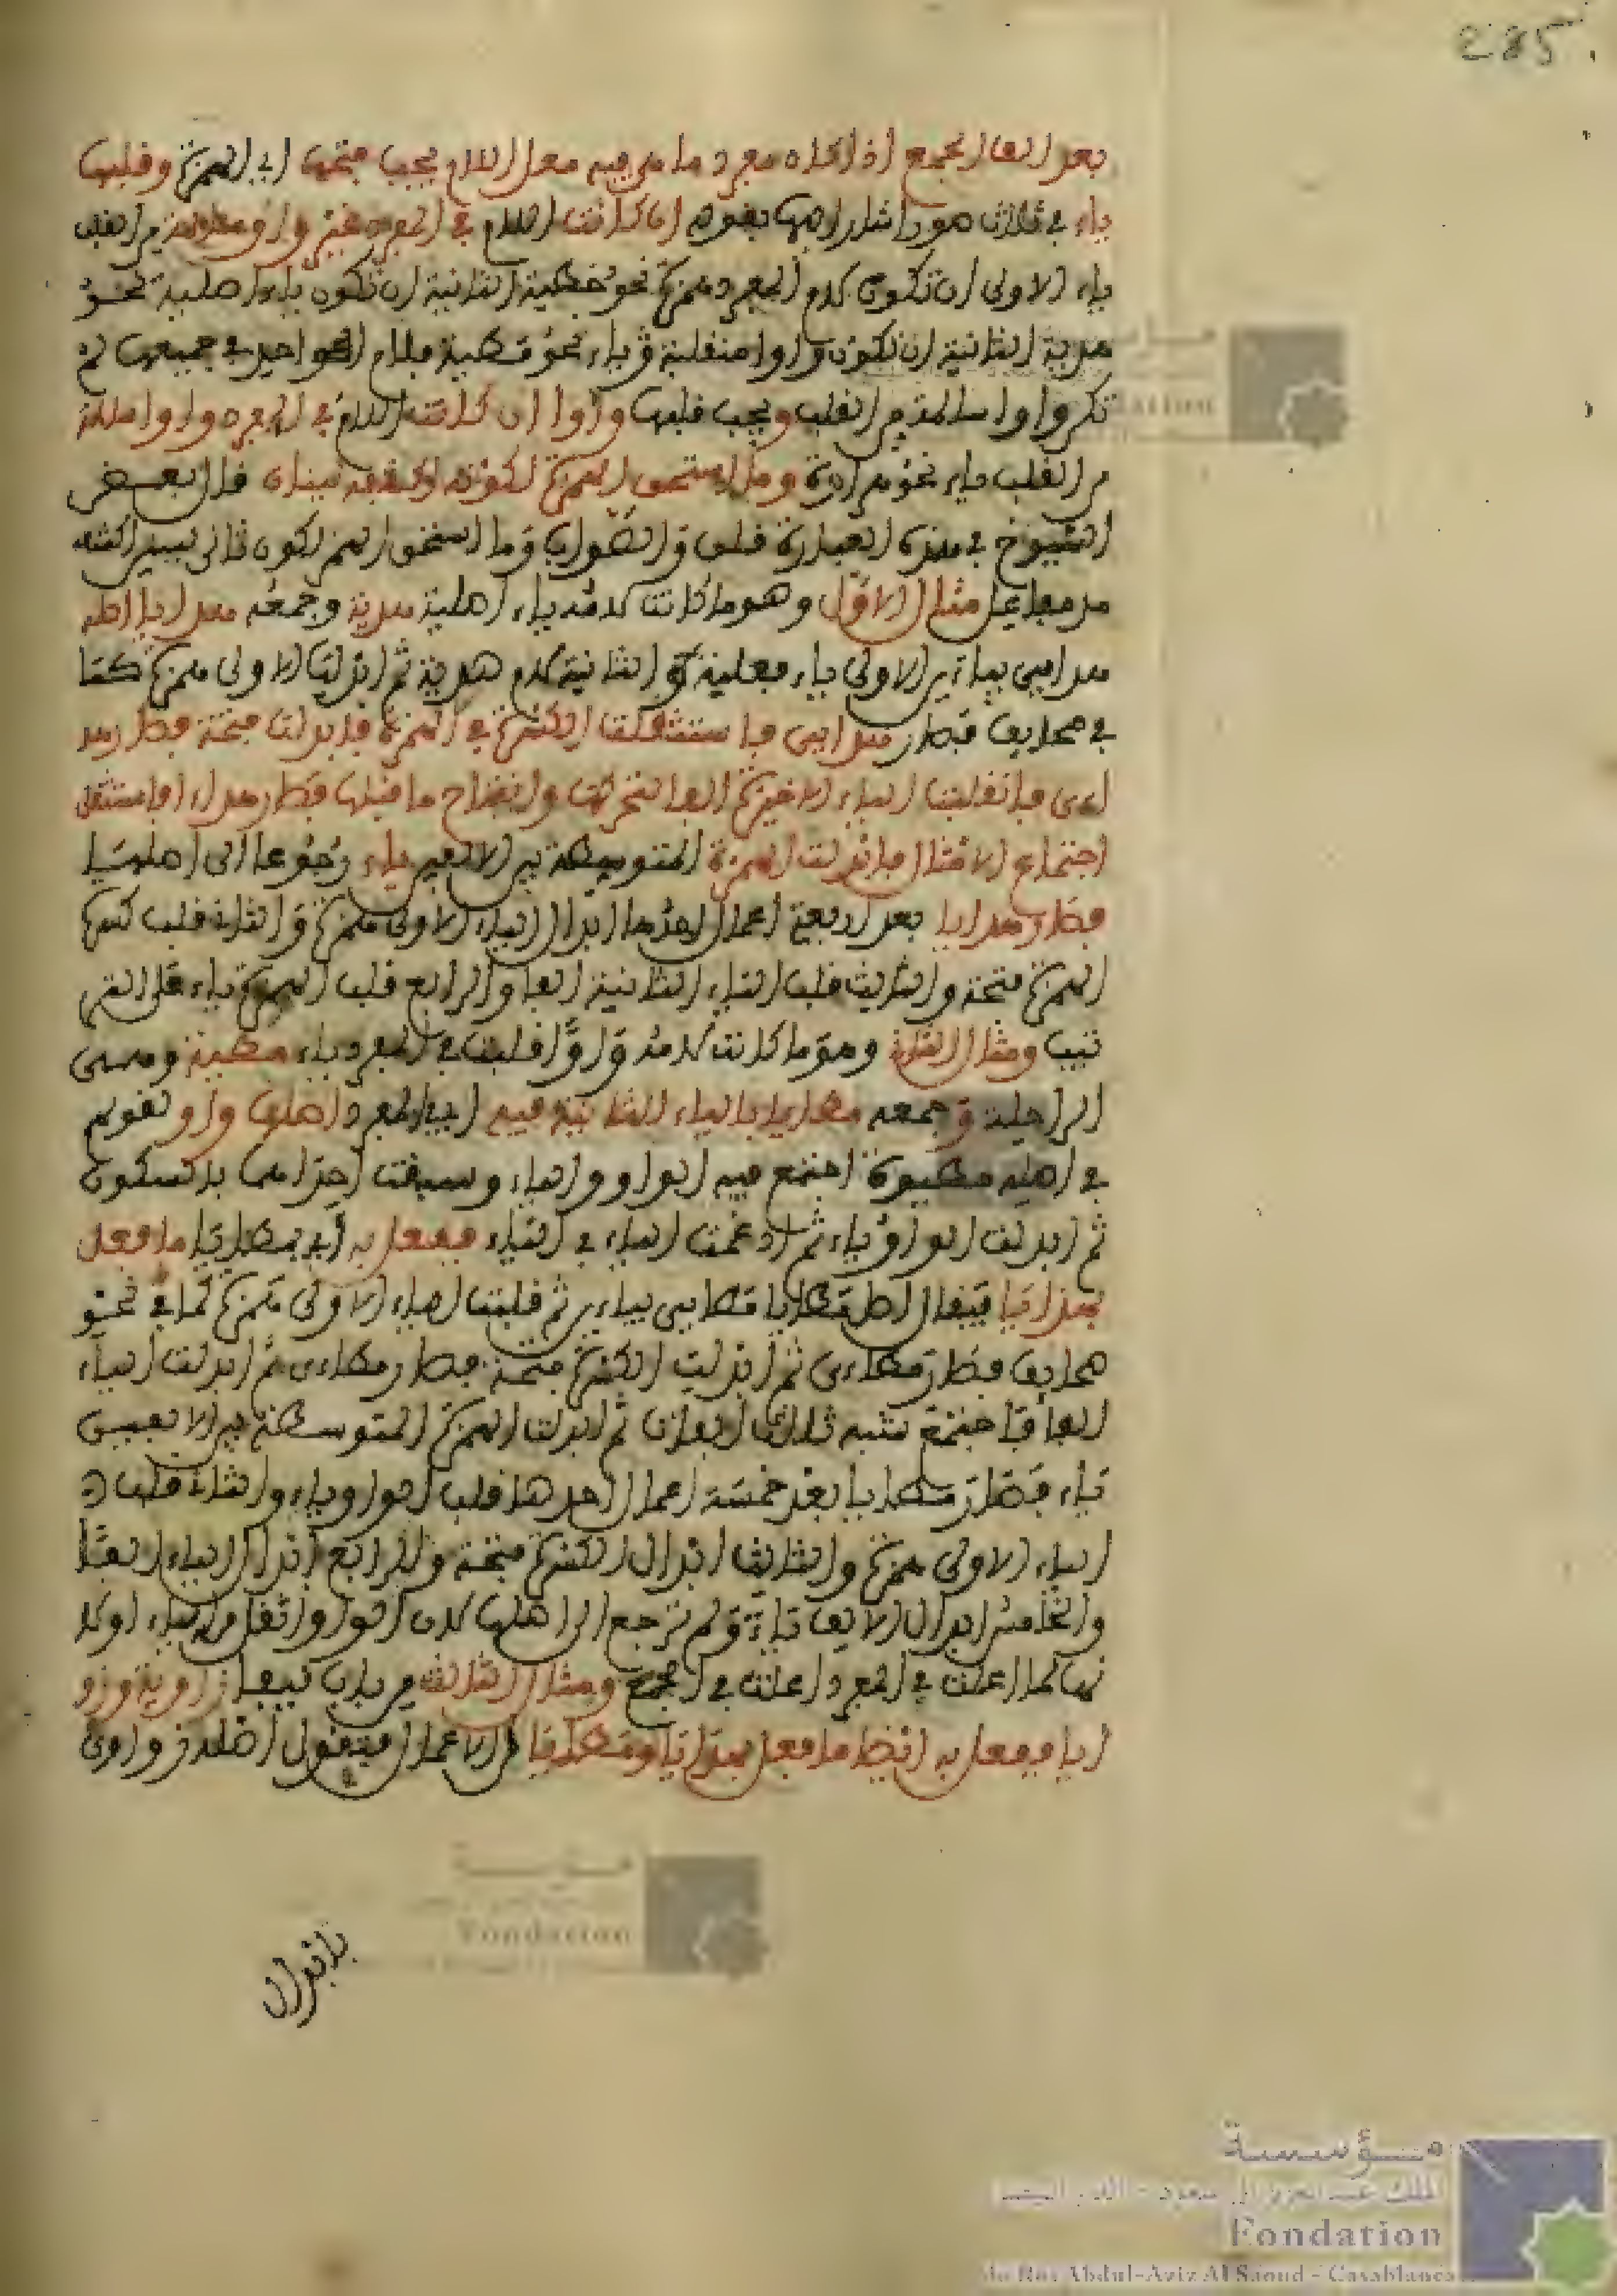 285
بعد الف الجمع اذا كان مفرد ما هي فيه معل اللام يجب فتحها اي الهمزة وقلبها
ياء في ثلاث صور اشار اليها بقوله ان كانت اللام في المفرد غير واو سالمة من القلب
ياء الاولى ان تكون لام المفرد همزة نحو خطية الثانية ان تكون ياء اصلية نحو
هدية الثانية ان تكون واوا منقلبة ياء نحو مطية فلام الواحد في جميعها لم
تكن واوا سالمة من القلب ويجب قلبها واوا ان كانت اللام في المفرد واوا سالمة
من القلب ياء نحو هراوة وما استحق الهمزة لكونه اكتنفه لينان قال بعض
الشيوخ في هذه العبارة قلب والصواب وما استحق الهمز لكون ثاني لينين اكتنفا
مد مفاعل مثال الاول وهو ما كانت لامه ياء اصلية هدية وجمعه هدايا اصله
هدايي بياءين الاولى ياء فعلية والثانية لام هدية ثم ابدلت الاولى همزة كما
في صحايف فصار هدايي فاستثقلت الكسرة في الهمزة فابدلت فتحة فصار هد
اءى فانقلبت الياء الاخيرة الفا لتحركها وانفتاح ما قبلها فصار هداءا فاستثقل
اجتماع الامثال فابدلت الهمزة المتوسطة بين الالفين ياء رجوعا الى اصلها
فصار هدايا بعد اربعة اعمال احدها ابدال الياء الاولى همزة والثاني قلب كسرة
الهمزة فتحة والثالث قلب الياء الثانية الفا والرابع قلب الهمزة ياء على التر
تيب ومثال الثاني وهو ما كانت لامه واوا قلبت في المفرد ياء مطية وهى
الراحلة وجمعه مطايا بالياء الثانية فيه اي في المفرد اصلها واو لقولهم
في اصله مطيوة اجتمع فيه الواو والياء وسبقت احداهما بالسكون
ثم ابدلت الواو ياء ثم ادغمت الياء في الياء ففعل به اي بمطايا ما فعل
بهدايا فيقال اصل مطايا مطايي بياءين ثم قلبت الياء الاولى همزة كما في نحو
صحايف فصار مطاءى ثم ابدلت الكسرة فتحة فصار مطاءى ثم ابدلت الياء
الفا فاجتمع شبه ثلاث الفات ثم ابدلت الهمزة المتوسطة بين الالفين
ياء فصار مطايا بعد خمسة اعمال احدها قلب الواو ياء والثاني قلب
الياء الاولى همزة والثالث ابدال الكسرة فتحة والرابع ابدال الياء الفا
والخامس ابدال الالف ياء ولم ترجع الى اصلها لان الواو اثقل من الياء او لا
نها لما اعلت في المفرد اعلت في الجمع ومثال الثالث من باب لفيفا زاوية وزو
ايا ففعل به ايضا ما فعل بهدايا ومطايا من الاعمال فيقول اصله زواوى
بابدال
مؤسسة
الملك عبد العزيز آل سعود - الدار البيضاء
Fondation
du Roi Abdul-Aziz Al Saoud - Casablanca